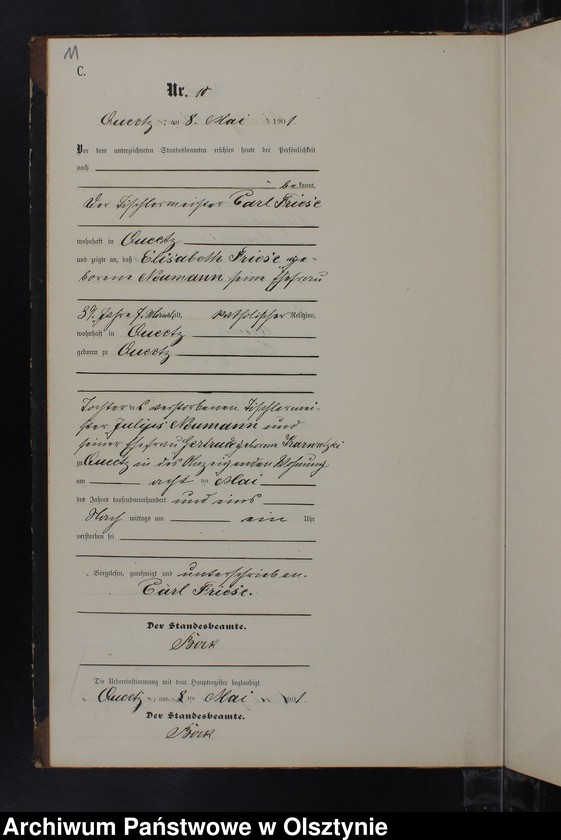 11
C.
Nr. 10
Queetz, am 8. Mai 1901
Vor dem unterzeichneten Standesbeamten erschien heute der Persönlichkeit
nach
bekannt,
der Tischlermeister Carl Friese
wohnhaft in Queetz
und zeigte an, daß Elisabeth Friese ge-
borene Neumann seine Ehefrau
39 Jahre 7 Monate alt, katholischer Religion,
wohnhaft in Queetz
geboren zu Queetz
Tochter des verstorbenen Tischlermei-
ster Julius Neumann und
seiner Ehefrau Gertrud geborene
zu Queetz in des Anzeigenden Wohnung
am acht ten Mai
des Jahres tausendneunhundert und eins
Nach mittags um ein Uhr
verstorben sei
Vorgelesen, genehmigt und unterschrieben.
Carl Friese.
Der Standesbeamte.
Bock
Die Uebereinstimmung mit dem Hauptregister beglaubigt.
Queetz, am 8 ten Mai 1901
Der Standesbeamte.
Bock
Archiwum Państwowe w Olsztynie